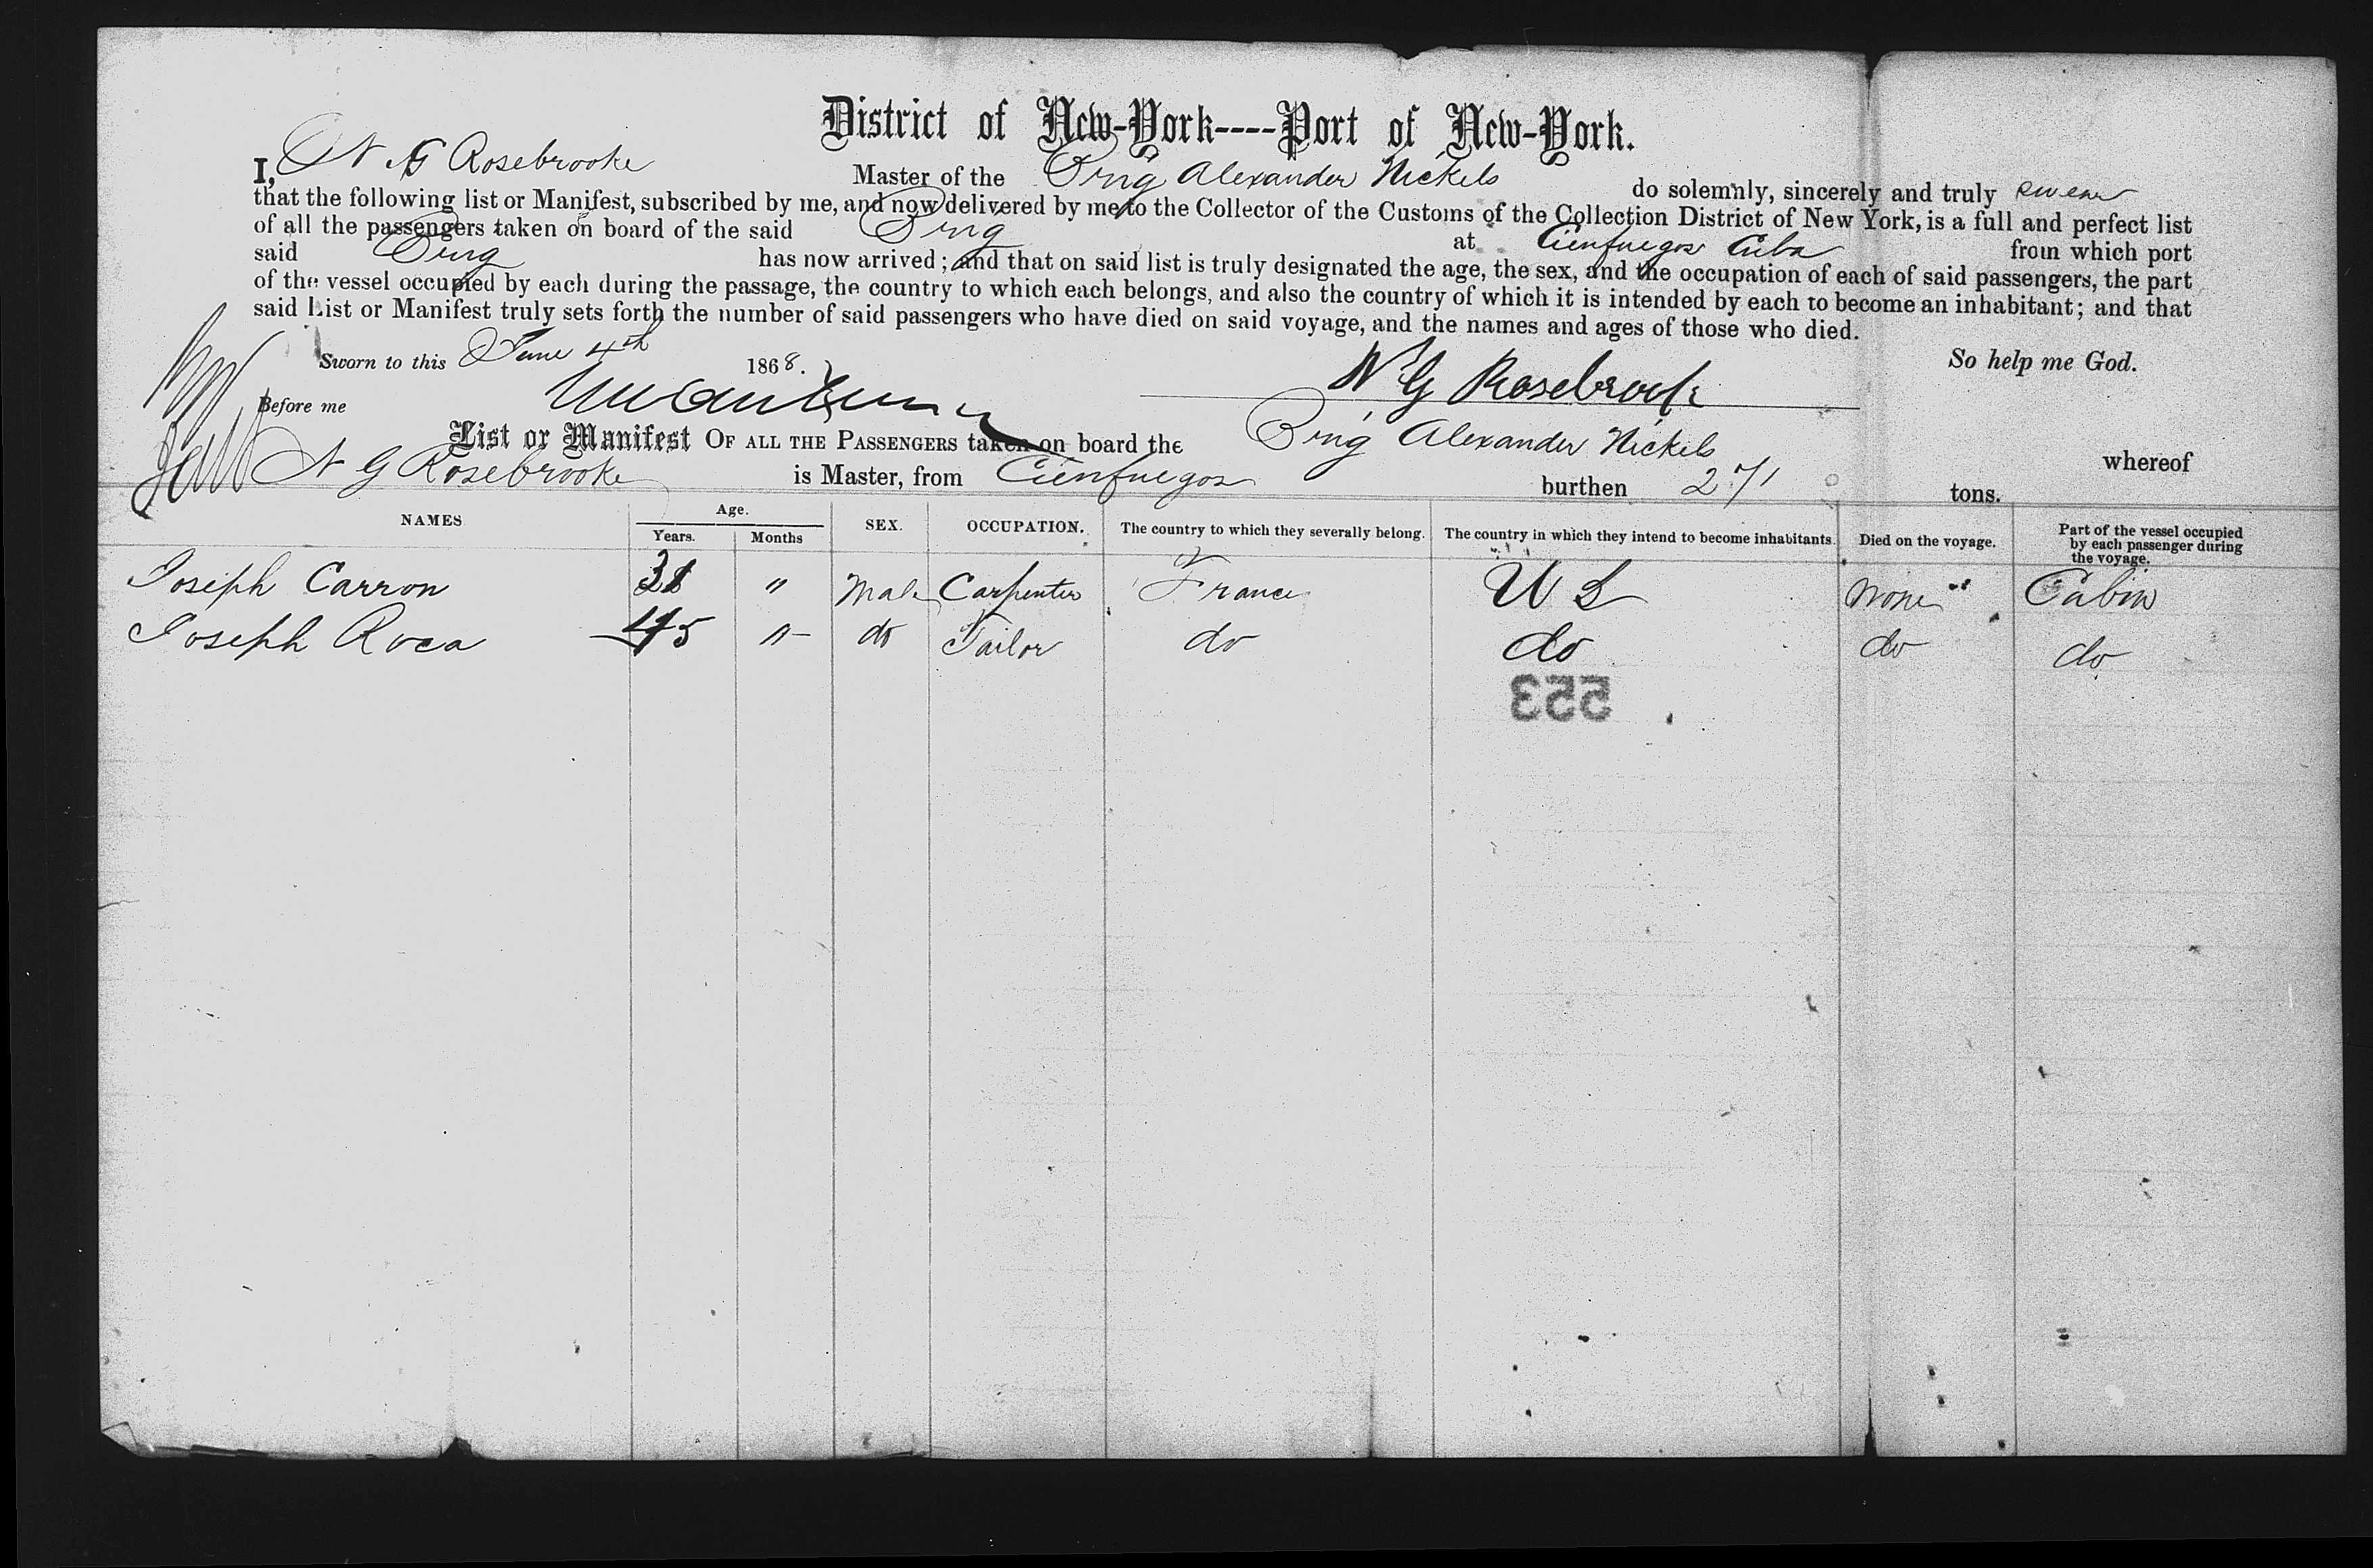 District of New-York----Port of New-York.
I, N G Rosebrooke Master of the Brig Alexander Nickels do solemnly, sincerely and truly swear
that the following list or Manifest, subscribed by me, and now delivered by me to the Collector of the Customs of the Collection District of New York, is a full and perfect list
of all the passengers taken on board of the said Brig at Cienfuegos Cuba from which port
said Brig has now arrived; and that on said list is truly designated the age, the sex, and the occupation of each of said passengers, the part
of the vessel occupied by each during the passage, the country to which each belongs, and also the country of which it is intended by each to become an inhabitant; and that
said List or Manifest truly sets forth the number of said passengers who have died on said voyage, and the names and ages of those who died.
Sworn to this June 4th 1868. So help me God.
N G Rosebrook
Before me
List or Manifest OF ALL THE PASSENGERS taken on board the Brig Alexander Nickels whereof
N G Rosebrooke is Master, from Cienfuegos burthen 271 tons.
NAMES Age. Years. Months SEX. OCCUPATION. The country to which they severally belong. The country in which they intend to become inhabitants. Died on the voyage. Part of the vessel occupied by each passenger during the voyage.
Joseph Carron " Male Carpenter France U S None Cabin
Joseph Roca 45 " do Tailor do do do do
553